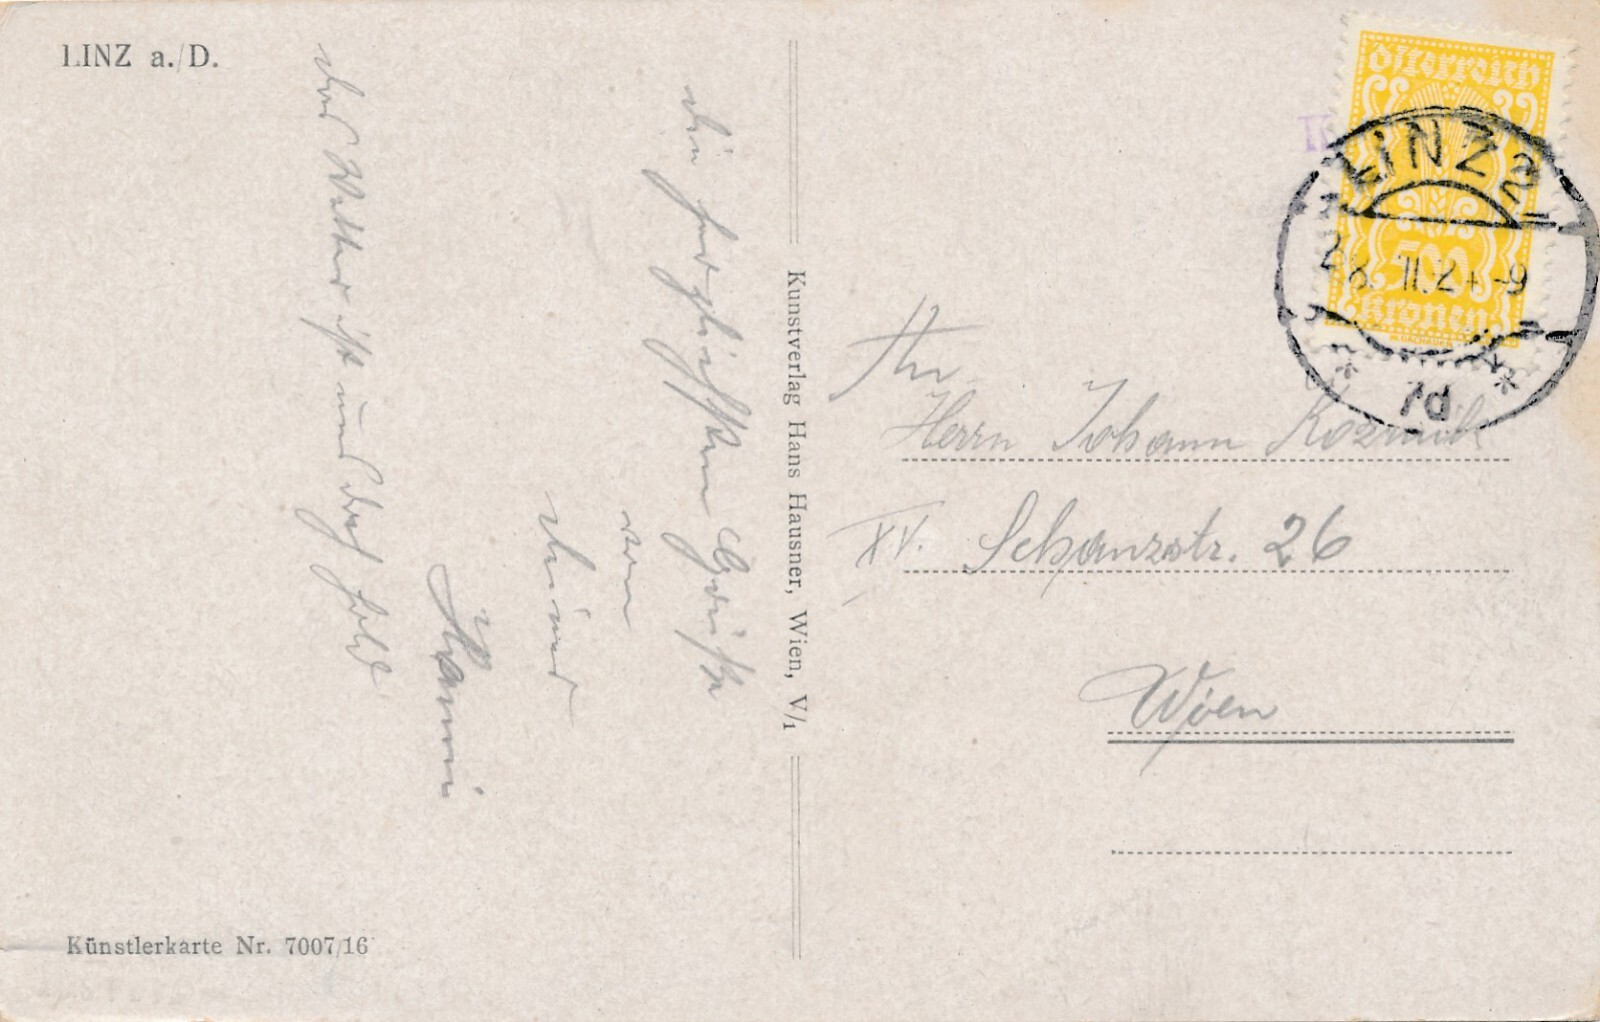 LINZ a./D.
Die herzlichsten Grüße
von
deiner
Hanni
das Wetter ist und
Künstlerkarte Nr. 7007/16
Kunstverlag Hans Hausner, Wien, V/1
österreich
500
Kronen
LINZ 2
28. II. 24 -9
* 7d *
Herrn Johann
XV. Schanzstr. 26
Wien